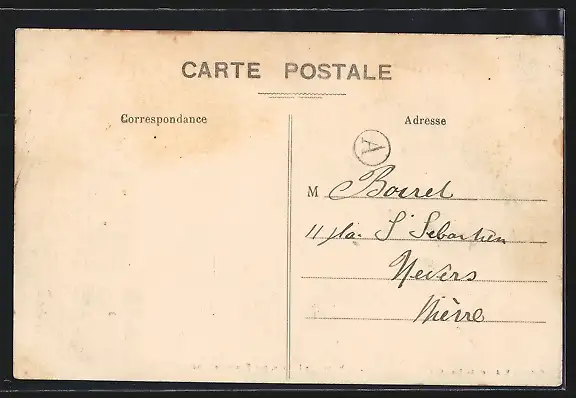 CARTE POSTALE
Correspondance
Adresse
A
M Boirel
11 pla. St Sebastien
Nevers
Nièvre